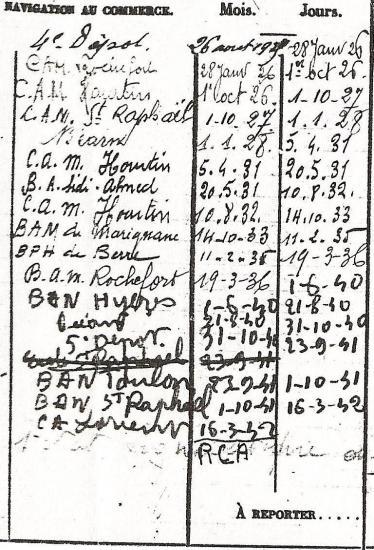 NAVIGATION AU COMMERCE. Mois. Jours.
4e Dépot. 26 aout 28 Janv 26
C.A.M. Rochefort 28 Janv 26 1er oct 26.
C.A.M Hourtin 1er oct 26. 1-10-27
C.A.M. St Raphaël 1-10-27 1.1.28
Béarn 1.1.28. 5.4.31
C.A.M. Hourtin 5.4.31 20.5.31
B.A. Sidi-Ahmed 20.5.31 10.8.32.
C.A.M. Hourtin 10.8.32. 14.10.33
BAM de Marignane 14-10-33 11-2-35
BPH de Berre 11-2-35 19-3-36
B.A.M. Rochefort 19-3-36 1-6-40
BAN Hyères 1-6-40 21-8-40
21-8-40 31-10-40
5e Depot. 31-10-40 23-9-41
St Raphael 23-9-41
BAN Toulon 23-9-41 1-10-41
BAN ST Raphael 1-10-41 16-3-42
CA 16-3-42
RCA
À REPORTER.....